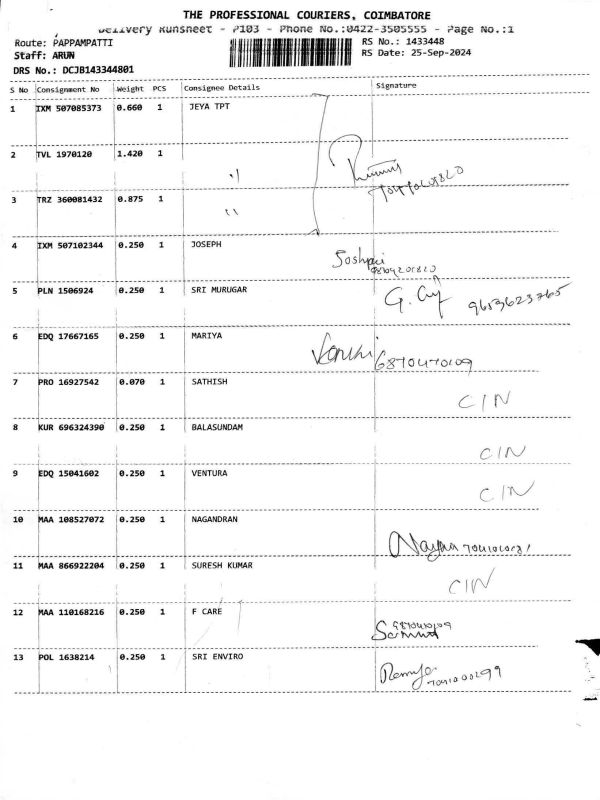 THE PROFESSIONAL COURIERS, COIMBATORE
Delivery Runsheet - P103 - Phone No.:0422-3505555 - Page No.:1
Route: PAPPAMPATTI
RS No.: 1433448
Staff: ARUN
RS Date: 25-Sep-2024
DRS No.: DCJB143344801
S No Consignment No Weight PCS Consignee Details Signature
1 IXM 507085373 0.660 1 JEYA TPT
2 TVL 1970120 1.420 1 "
3 TRZ 360081432 0.875 1 "
4 IXM 507102344 0.250 1 JOSEPH
5 PLN 1506924 0.250 1 SRI MURUGAR G. 9653623765
6 EDQ 17667165 0.250 1 MARIYA 6870470109
7 PRO 16927542 0.070 1 SATHISH CIN
8 KUR 696324390 0.250 1 BALASUNDAM CIN
9 EDQ 15041602 0.250 1 VENTURA CIN
10 MAA 108527072 0.250 1 NAGANDRAN
11 MAA 866922204 0.250 1 SURESH KUMAR CIN
12 MAA 110168216 0.250 1 F CARE
13 POL 1638214 0.250 1 SRI ENVIRO Ramya